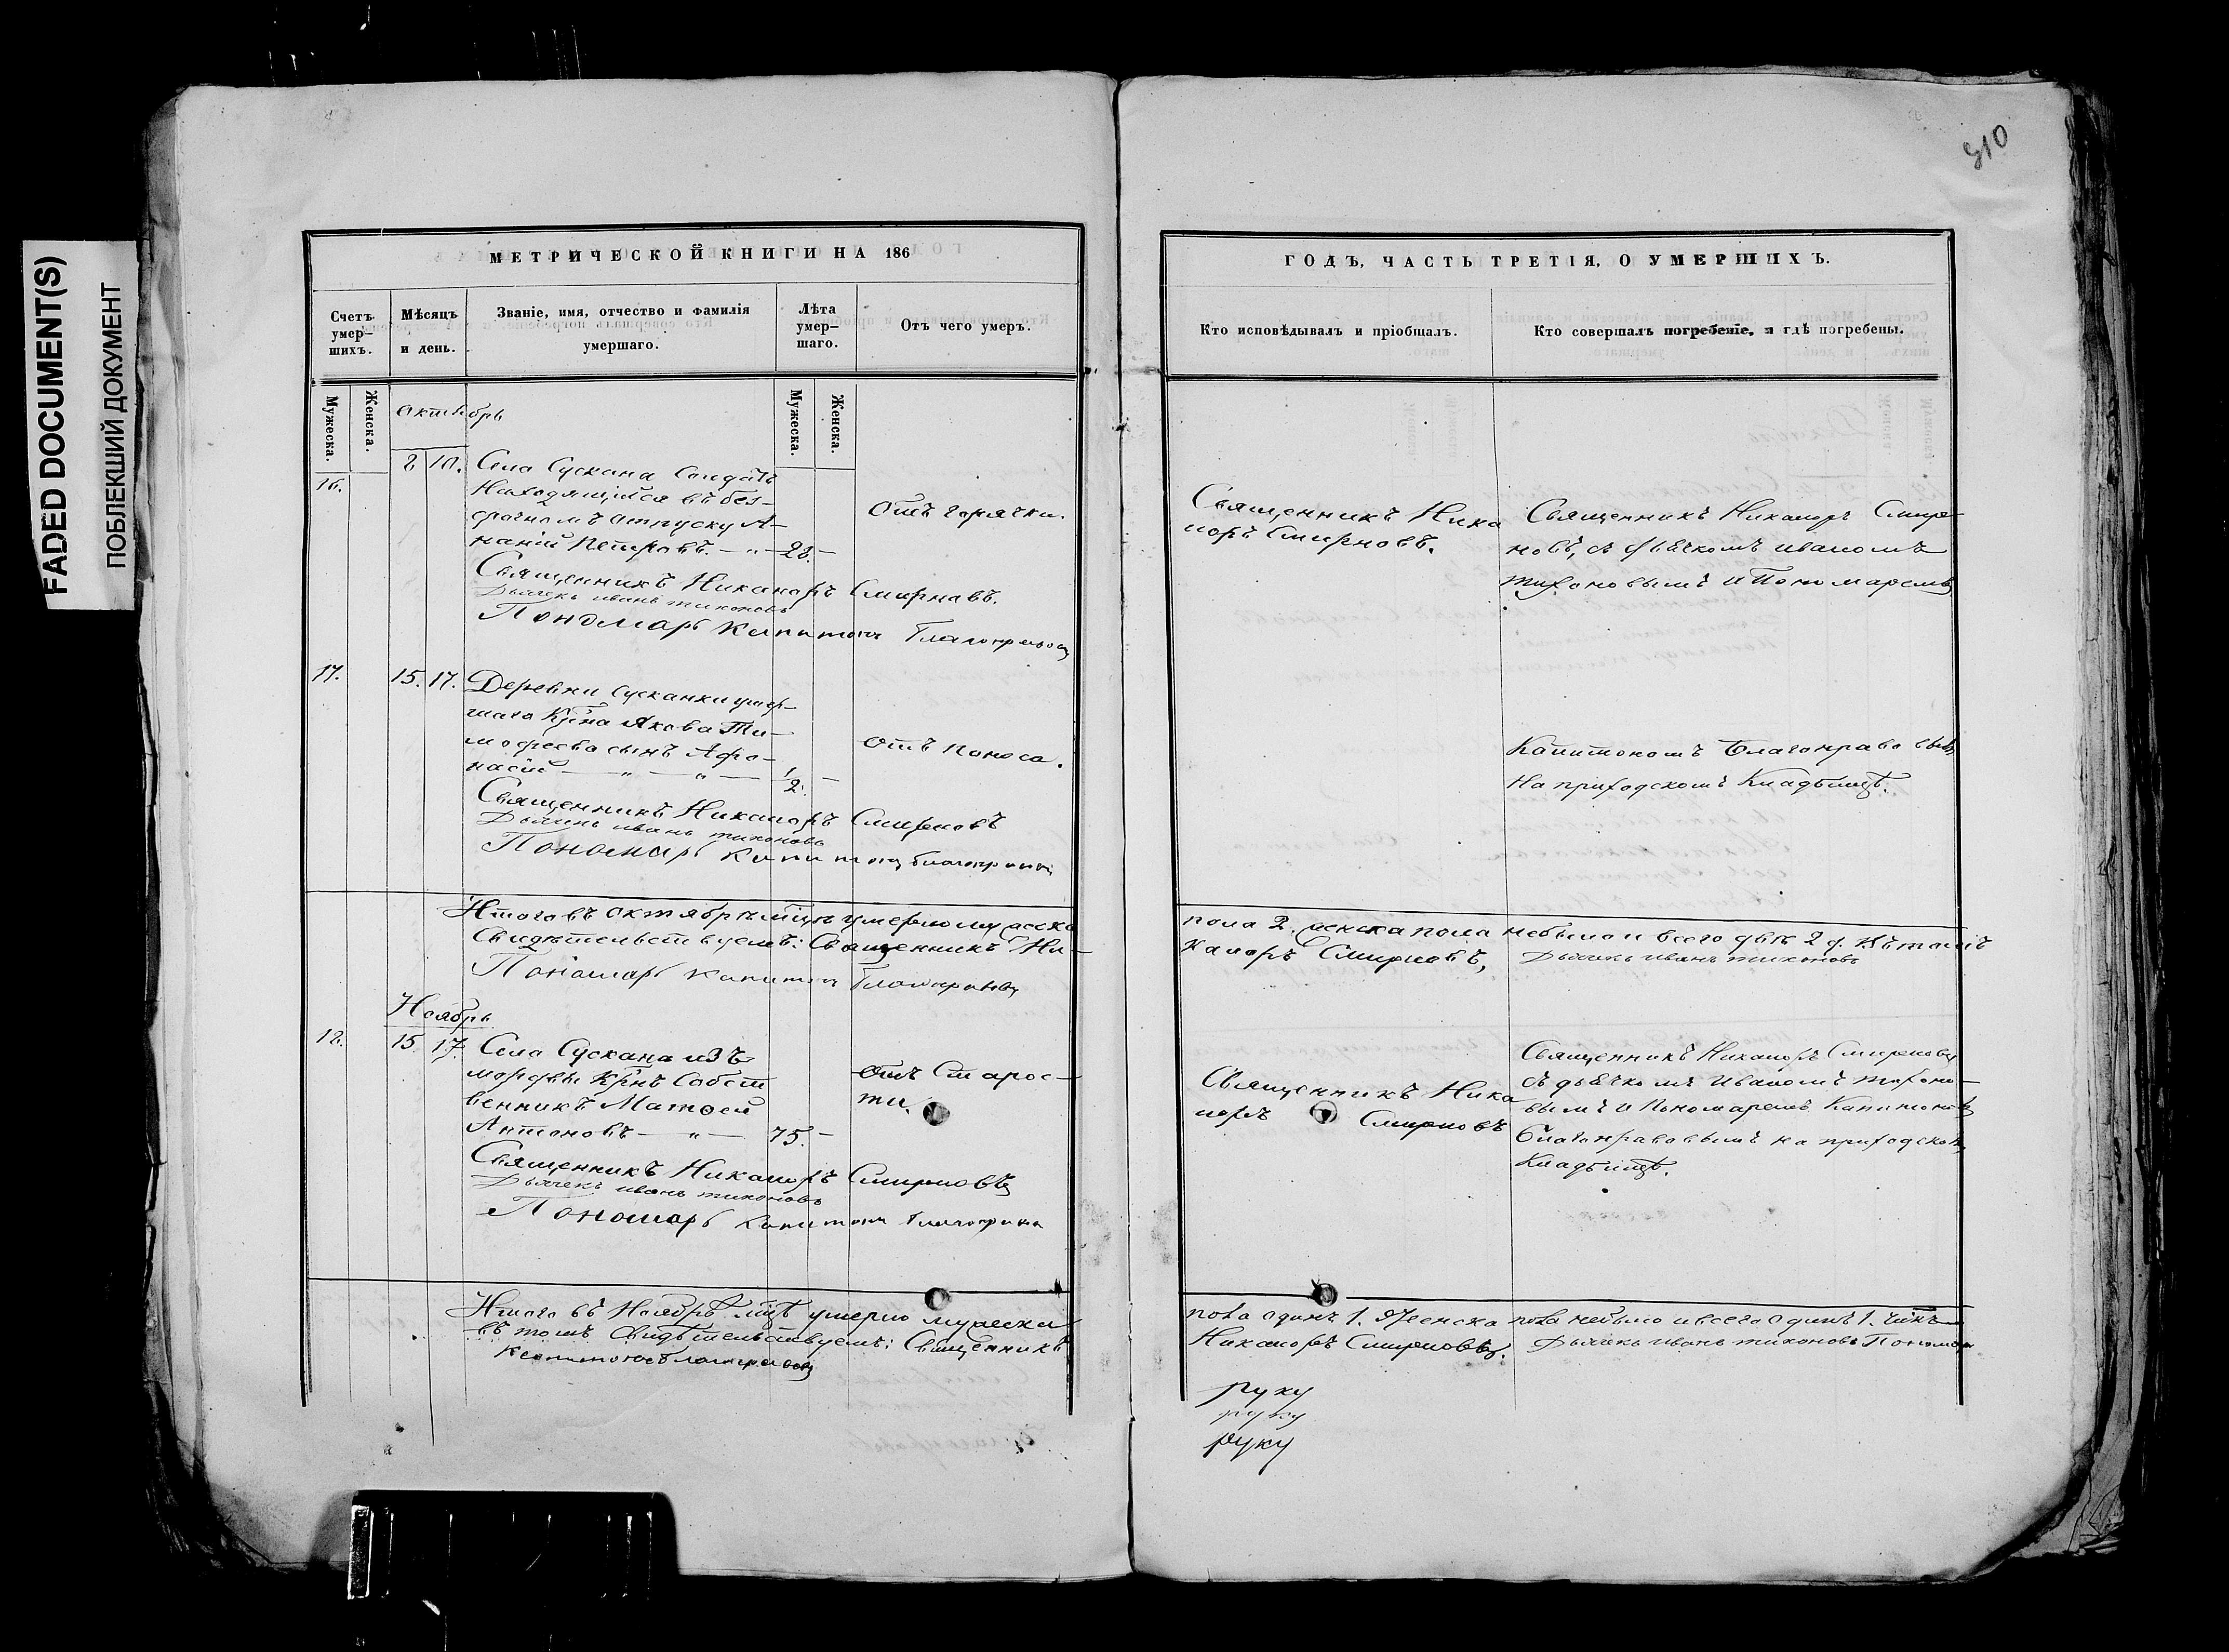 FADED DOCUMENT(S)
ПОБЛЕКШИЙ ДОКУМЕНТ
310
МЕТРИЧЕСКОЙ КНИГИ НА 186
Счетъ умер-
шихъ.
Мѣсяцъ
и день.
Званіе, имя, отчество и фамилія
умершаго.
Лѣта
умер-
шаго.
Отъ чего умеръ.
Мужеска.
Женска.
Мужеска.
Женска.
Октябрь
16.
8 10.
Села Сускана Солдатъ
Находящийся въ без-
срочномъ отпуску А-
наній Петровъ. — „ — 28. —
Отъ горячки.
Священникъ Никаноръ Смирновъ.
Дьячекъ иванъ тихоновъ
Пономарь Капитонъ Благонравовъ
17.
15. 17.
Деревни Сусканки умер-
шаго Крѣна Якова Ти-
мофеева сынъ Афо-
насій — „ — „ — 1/2. —
Отъ поноса.
Священникъ Никаноръ Смирновъ
Дьячекъ иванъ тихоновъ
Пономарь Капитонъ Благонравовъ
Итого въ октябрѣ мцѣ умерло мужеска
Свидѣтельствуемъ: Священникъ Ни-
Пономарь Капитонъ Благонравовъ
Ноябрь
18.
15 17.
Села Сускана изъ
мордвы Крнъ Собст
венникъ Матвей
Антоновъ — „ — 75. —
Отъ Старос-
ти.
Священникъ Никаноръ Смирновъ
Дьячекъ иванъ тихоновъ
Пономарь Капитонъ Благонравовъ
Итого въ Ноябрѣ мцѣ умерло мужеска
въ томъ Свидѣтельствуемъ: Священникъ
Капитонъ Благонравовъ
ГОДЪ, ЧАСТЬ ТРЕТІЯ, О УМЕРШИХЪ.
Кто исповѣдывалъ и пріобщалъ.
Кто совершалъ погребеніе, и гдѣ погребены.
Священникъ Ника
норъ Смирновъ.
Священникъ Никаноръ Смир-
новъ, съ дьячкомъ иваномъ
тихоновымъ и Пономаремъ
Капитономъ Благонравовымъ
на приходскомъ Кладбищѣ.
пола 2. женска пола небыло и всего двѣ 2 д. Въ томъ
каноръ Смирновъ,
Дьячекъ иванъ тихоновъ
Священникъ Ника
норъ Смирновъ
Священникъ Никаноръ Смирновъ
съ дьячкомъ Иваномъ тихоно-
вымъ и Пономаремъ Капитономъ
Благонравовымъ на приходскомъ
Кладбищѣ.
пола одинъ 1. Женска пола небыло и всего одинъ 1.
Никаноръ Смирновъ.
Дьячекъ иванъ тихоновъ Пономарь
руку
руку
руку